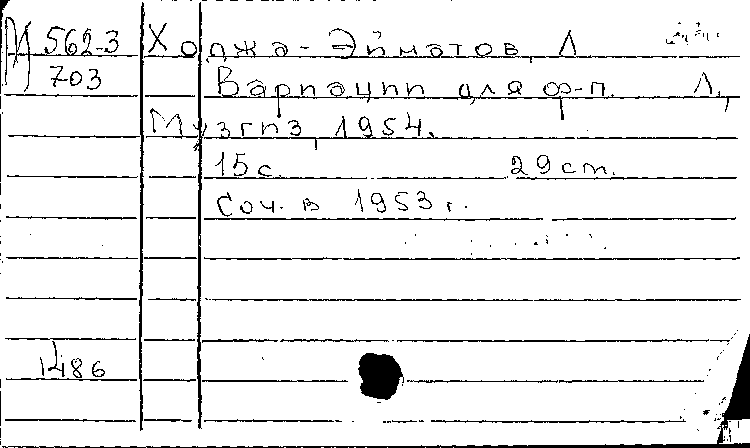 М 562-3 Ходжа-Эйматов, Л
703 Вариации для ф-п. Л.,
Музгиз, 1954.
15с. 29cm.
Соч. в 1953 г.
1486